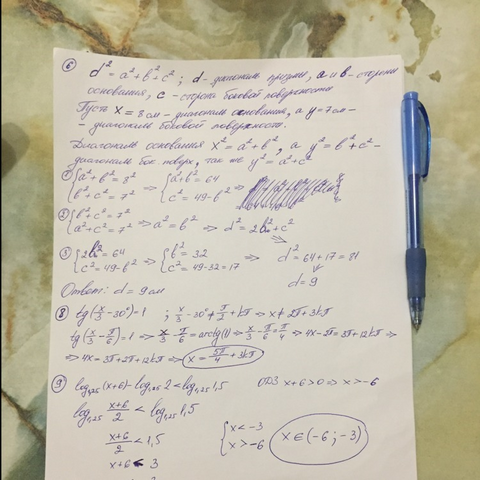 ⑥ d² = a² + b² + c² ; d - диагональ призмы, a и b - стороны
основания, c - сторона боковой поверхности
Пусть x = 8 см - диагональ основания, а y = 7 см -
- диагональ боковой поверхности.
Диагональ основания x² = a² + b², а y² = b² + c² -
диагональ бок поверх, так же y² = a² + c²
① { a² + b² = 8² ⇒ { a² + b² = 64
b² + c² = 7² c² = 49 - b² ⇒
② { b² + c² = 7²
a² + c² = 7² ⇒ a² = b² ⇒ d² = 2b² + c²
③ { 2b² = 64 ⇒ { b² = 32 ⇒ d² = 64 + 17 = 81
c² = 49 - b² c² = 49 - 32 = 17 d = 9
Ответ: d = 9 см
⑧ tg(x/3 - 30°) = 1 ; x/3 - 30° ≠ π/2 + πk ⇒ x ≠ 2π + 3kπ
tg(x/3 - π/6) = 1 ⇒ x/3 - π/6 = arctg(1) ⇒ x/3 - π/6 = π/4 ⇒ 4x - 2π = 3π + 12kπ ⇒
⇒ 4x = 3π + 2π + 12kπ ⇒ x = 5π/4 + 3kπ
⑨ log₁,₂₅(x+6) - log₁,₂₅ 2 < log₁,₂₅ 1,5 ОДЗ x+6 > 0 ⇒ x > -6
log₁,₂₅ (x+6)/2 < log₁,₂₅ 1,5
(x+6)/2 < 1,5 { x < -3
x > -6 x ∈ (-6 ; -3)
x+6 < 3